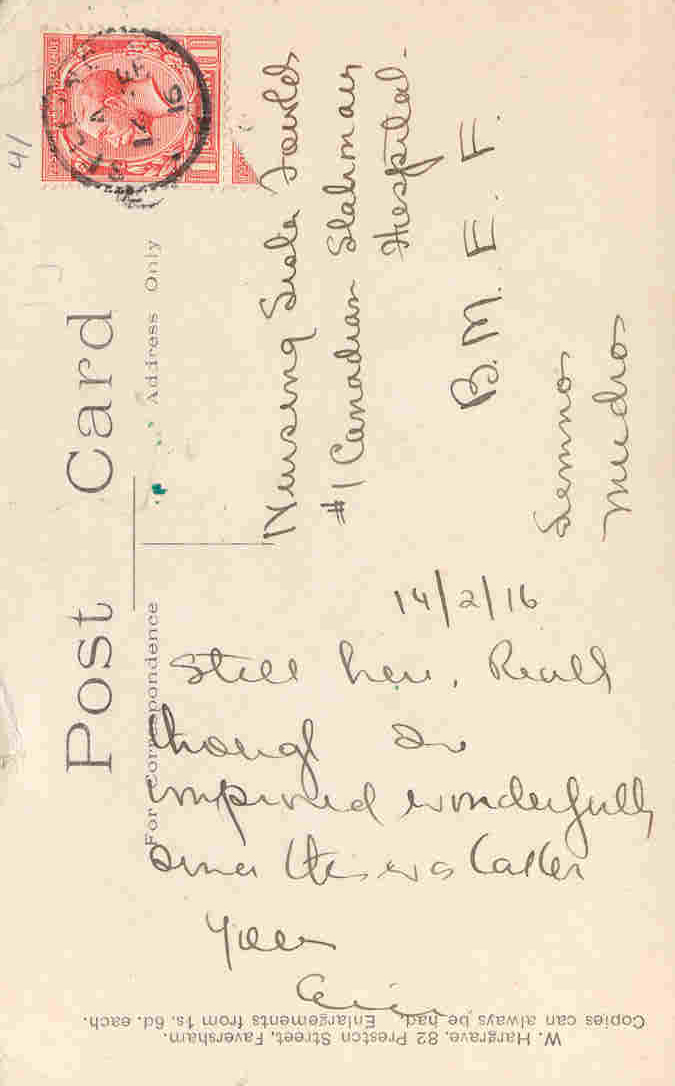 Post Card
For Correspondence
Address Only
41
FE
14
16
Nursing Sister Fowlds
#1 Canadian Stationary
Hospital.
B. M. E. F.
Lemnos
Mudros
14/2/16
Still here. Really
though I've
improved wonderfully
since this was taken
Yours
W. Hargrave, 82 Preston Street, Faversham.
Copies can always be had. Enlargements from 1s. 6d. each.